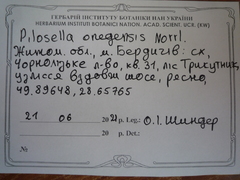 ГЕРБАРІЙ ІНСТИТУТУ БОТАНІКИ НАН УКРАЇНИ
HERBARIUM INSTITUTI BOTANICI NATION. ACAD. SCIENT. UCR. (KW)
Pilosella onegensis Norrl.
Житом. обл., м. Бердичів: сх,
Чорноліське л-во, кв. 31, ліс Трикутник,
узлісся вздовж шосе, рясно,
49.89648, 28.65765
21 06 2021 р. Leg.: О.І. Шиндер
20 р. Det.: